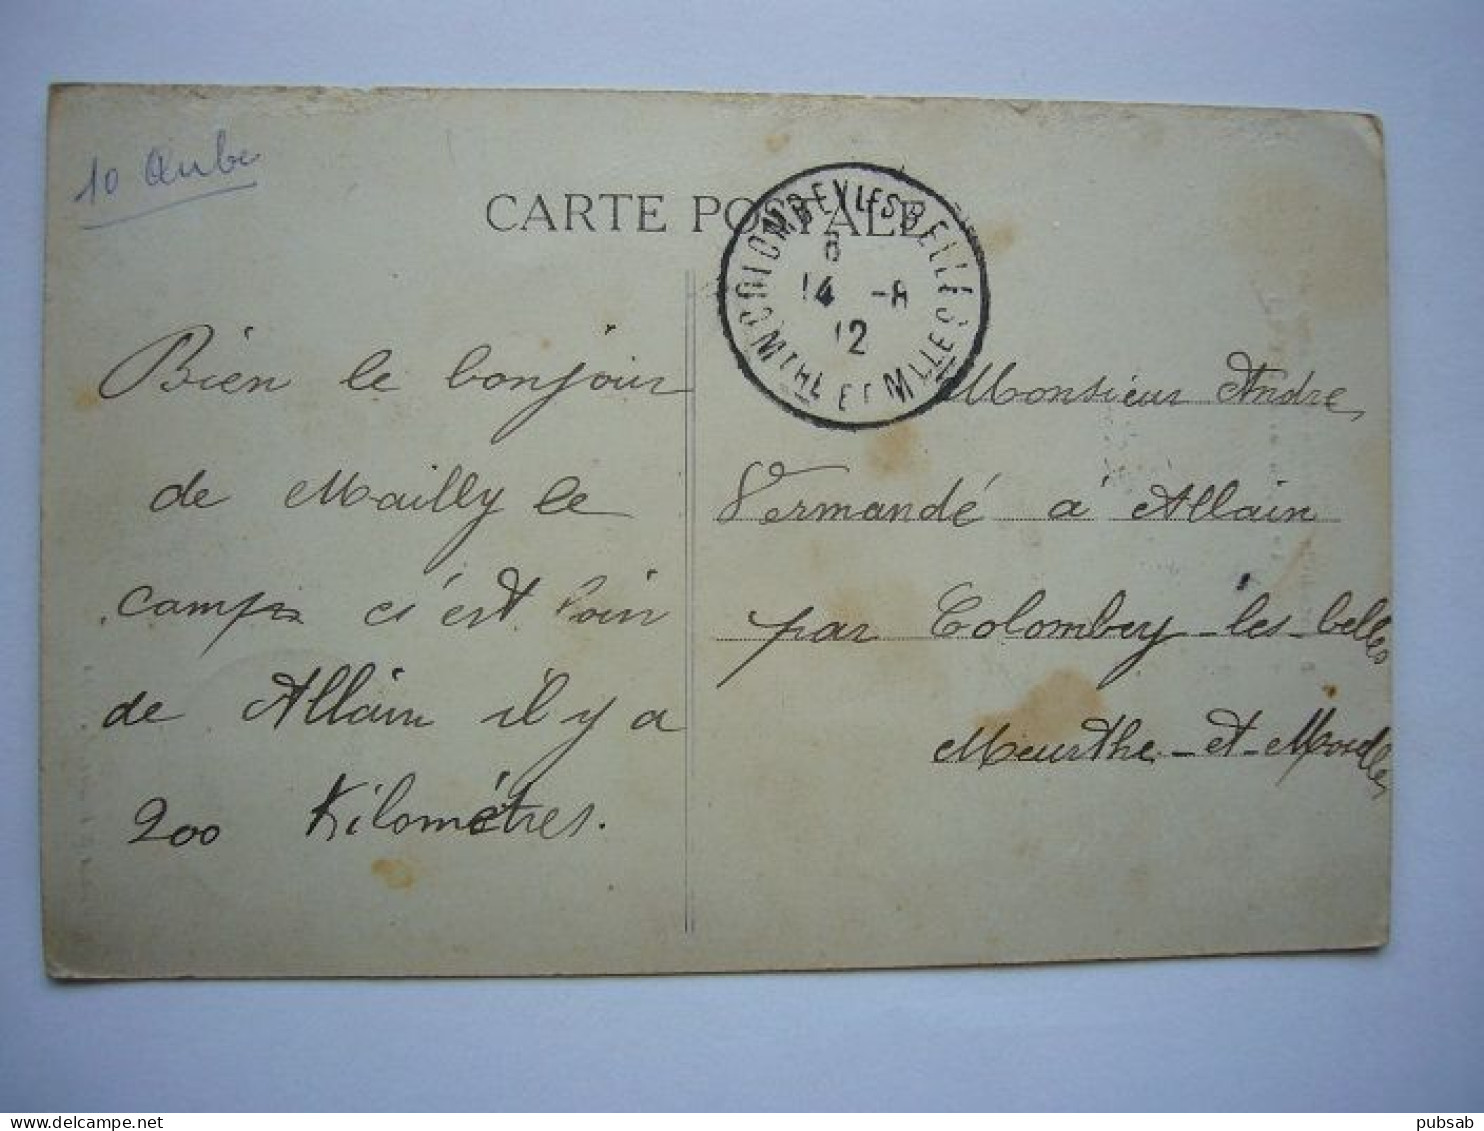 10 Aube
CARTE POSTALE
COLOMBEY LES BELLES
8
14 -8
12
MTHE ET MLLE
Bien le bonjour
de Mailly le
camp c'est loin
de Allain il y a
200 Kilométres.
Monsieur Andre
Vermandé à Allain
par Colombey-les-belles
Meurthe-et-Moselle
pubsab